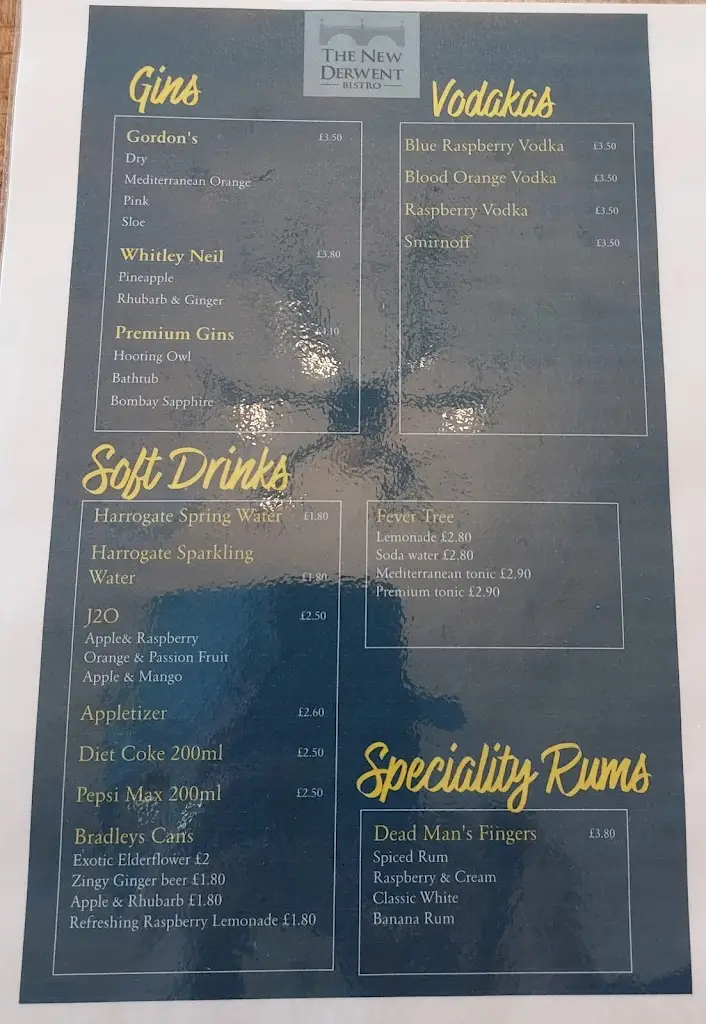 THE NEW
DERWENT
BISTRO
Gins
Gordon's £3.50
Dry
Mediterranean Orange
Pink
Sloe
Whitley Neil £3.80
Pineapple
Rhubarb & Ginger
Premium Gins £4.10
Hooting Owl
Bathtub
Bombay Sapphire
Vodakas
Blue Raspberry Vodka £3.50
Blood Orange Vodka £3.50
Raspberry Vodka £3.50
Smirnoff £3.50
Soft Drinks
Harrogate Spring Water £1.80
Harrogate Sparkling
Water £1.80
J2O £2.50
Apple& Raspberry
Orange & Passion Fruit
Apple & Mango
Appletizer £2.60
Diet Coke 200ml £2.50
Pepsi Max 200ml £2.50
Bradleys Cans
Exotic Elderflower £2
Zingy Ginger beer £1.80
Apple & Rhubarb £1.80
Refreshing Raspberry Lemonade £1.80
Fever Tree
Lemonade £2.80
Soda water £2.80
Mediterranean tonic £2.90
Premium tonic £2.90
Speciality Rums
Dead Man's Fingers £3.80
Spiced Rum
Raspberry & Cream
Classic White
Banana Rum